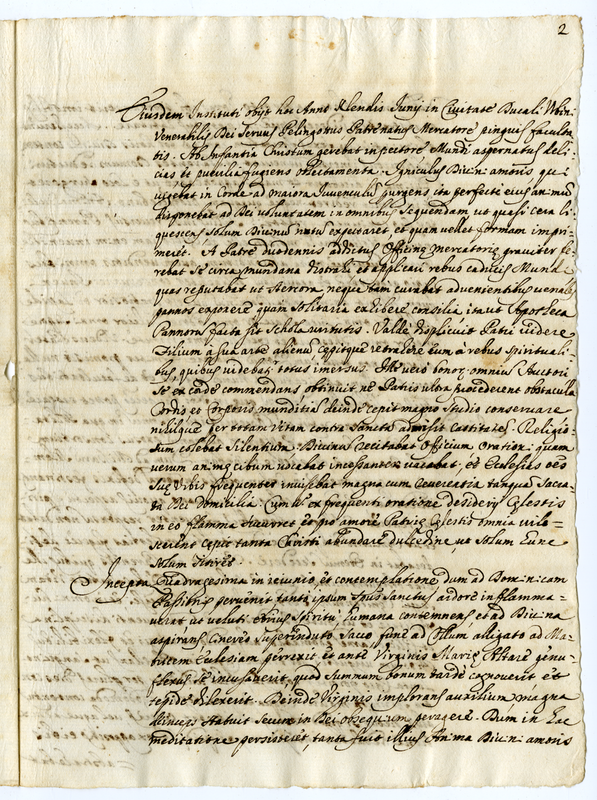 2
Eiusdem Instituti obijt hoc Anno Klendis Junij in Civitate Ducali Vrbini
Venerabilis Dei Servus Pelingotus Patre natus Mercatore pinguis faculta
tis. Ab Infantia Christum gerebat in pectore Mundi aspernatus deli-
cias et puerilia fugiens oblectamenta. Igniculus Divini amoris qui
vigebat in Corde ad maiora Iuvenculu surgens ita perfecte eius animu
disponebat ad Dei voluntatem in omnibus sequendam, ut quasi cera li-
quescens solum Divinu nutu expectaret et quam vellet formam impri-
meret. A Patre duodennis addictus Officinę mercatorię graviter fe-
rebat se circa mundana distrahi et applicari rebus caducis Mundi
quas reputabat ut stercora neque tam curabat advenientibus venales
pannos exponere quam solitaria exhibere consilia ita ut Apotheca
Pannoru facta sit Schola virtutis. Valde displicuit Patri videre
Filium à sua arte alienu cogitque retrahere eum à rebus spirituali-
bus, quibus videbat totus imersus. At vero bonor. omniu Auctori
se ex corde commendans obtinuit ne Patris ultra procederent obstacula
Cordis et Corporis munditia deinde cepit magno studio conservare
nihilque per totam vitam contra Sancta admisit Castitate. Religio-
sum colebat silentium. Divinu recitabat Officium Oration. quam
verum animę cibum vocabat incessanter vacabat, et Ecclesias oēs
suę Vrbis frequenter invisebat magna cum reverentia tanqua Sacra-
ta Dei domicilia. Cum ex frequenti oratione desiderij Celestis
in eo flamma succurret et pro amore Patrię Celestis omnia vile-
scerent cepit tanta Christi abundare dulcedine, ut solum Eune
solum sitiret.
Incepta Quadragesima in ieiunio et contemplatione dum ad Dominicam
Passionis pervenit tanti ipsum Spus Sanctus ardore inflamma-
verat ut veluti Ebrius Spiritu, humana contemnens et ad Divina
aspirans Cineres superinduto Sacco fune ad Collum alligato ad Ma-
tricem Ecclesiam perrexit et ante Virginis Marię Altare genu-
flexus se incusaverit quod Summum bonum tardè cognoverit et
tepide dilexerit. Deinde Virginis implorans auxilium magna
statuit Secum in Dei obsequium peragere. Dum in hac
meditatione persisteret, tanta fuit illius Anima Divini amoris